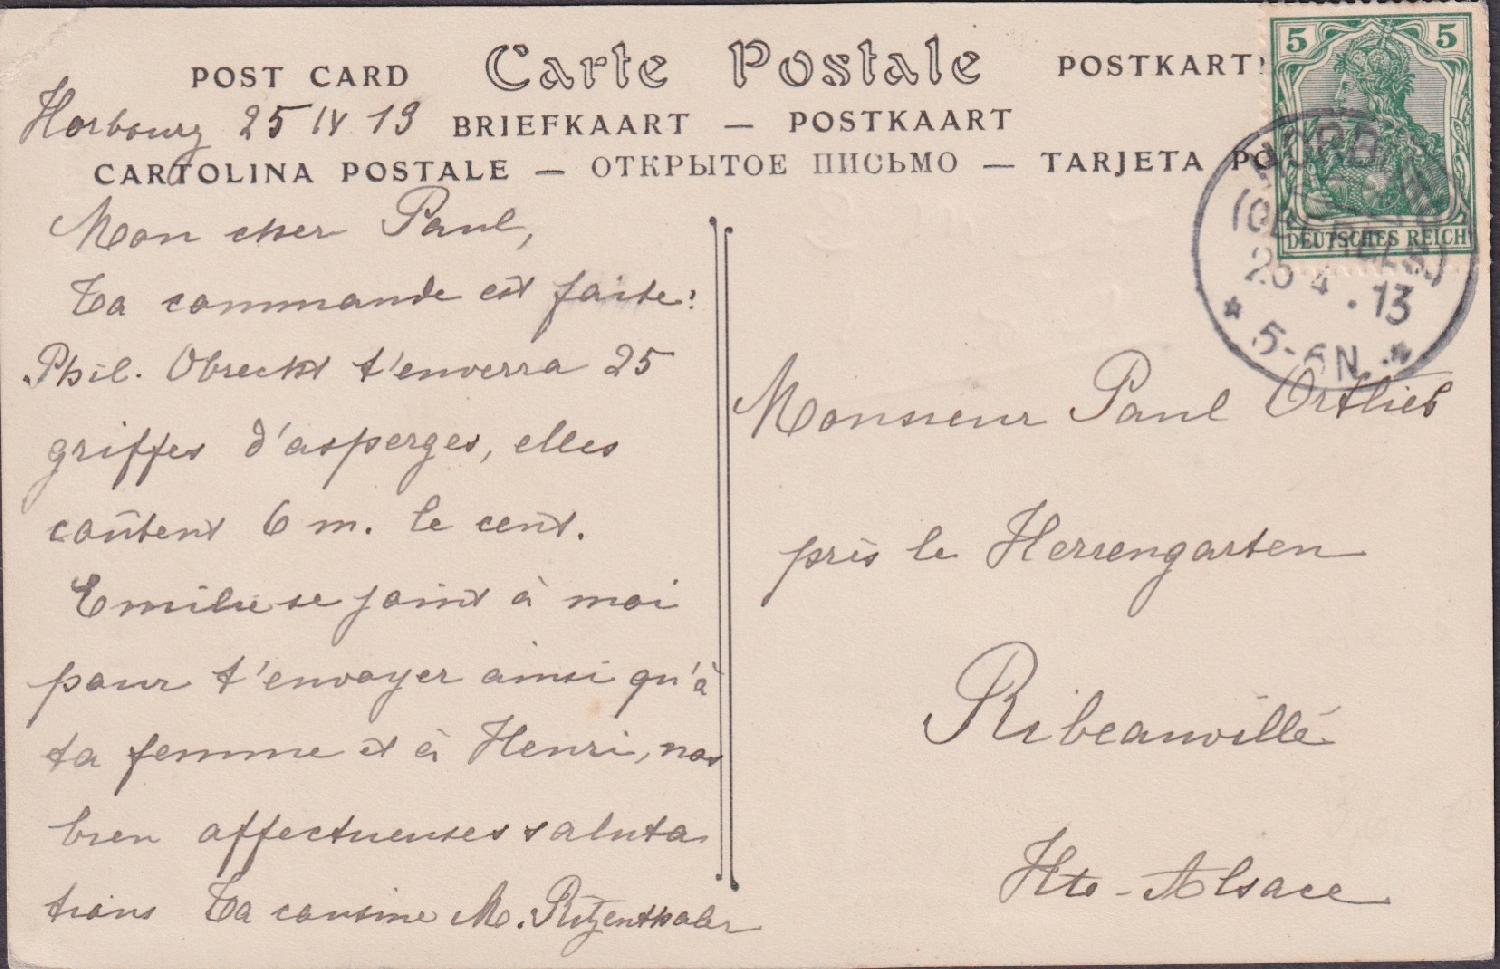 POST CARD Carte Postale POSTKART
Horbourg 25 IV 13 BRIEFKAART — POSTKAART
CARTOLINA POSTALE — ОТКРЫТОЕ ПИСЬМО — TARJETA PO
5 5
DEUTSCHES REICH
HORB
(OB ELS.)
25 4 . 13
* 5-6N *
Mon cher Paul,
Ta commande est faite:
Phil. Obrecht t'enverra 25
griffes d'asperges, elles
coûtent 6 m. le cent.
Emilie se joint à moi
pour t'envoyer ainsi qu'à
ta femme et à Henri, nos
bien affectueuses saluta
tions Ta cousine M. Ritzenthaler
Monsieur Paul Ortlieb
près le Herrengarten
Ribeauvillé
Hte-Alsace